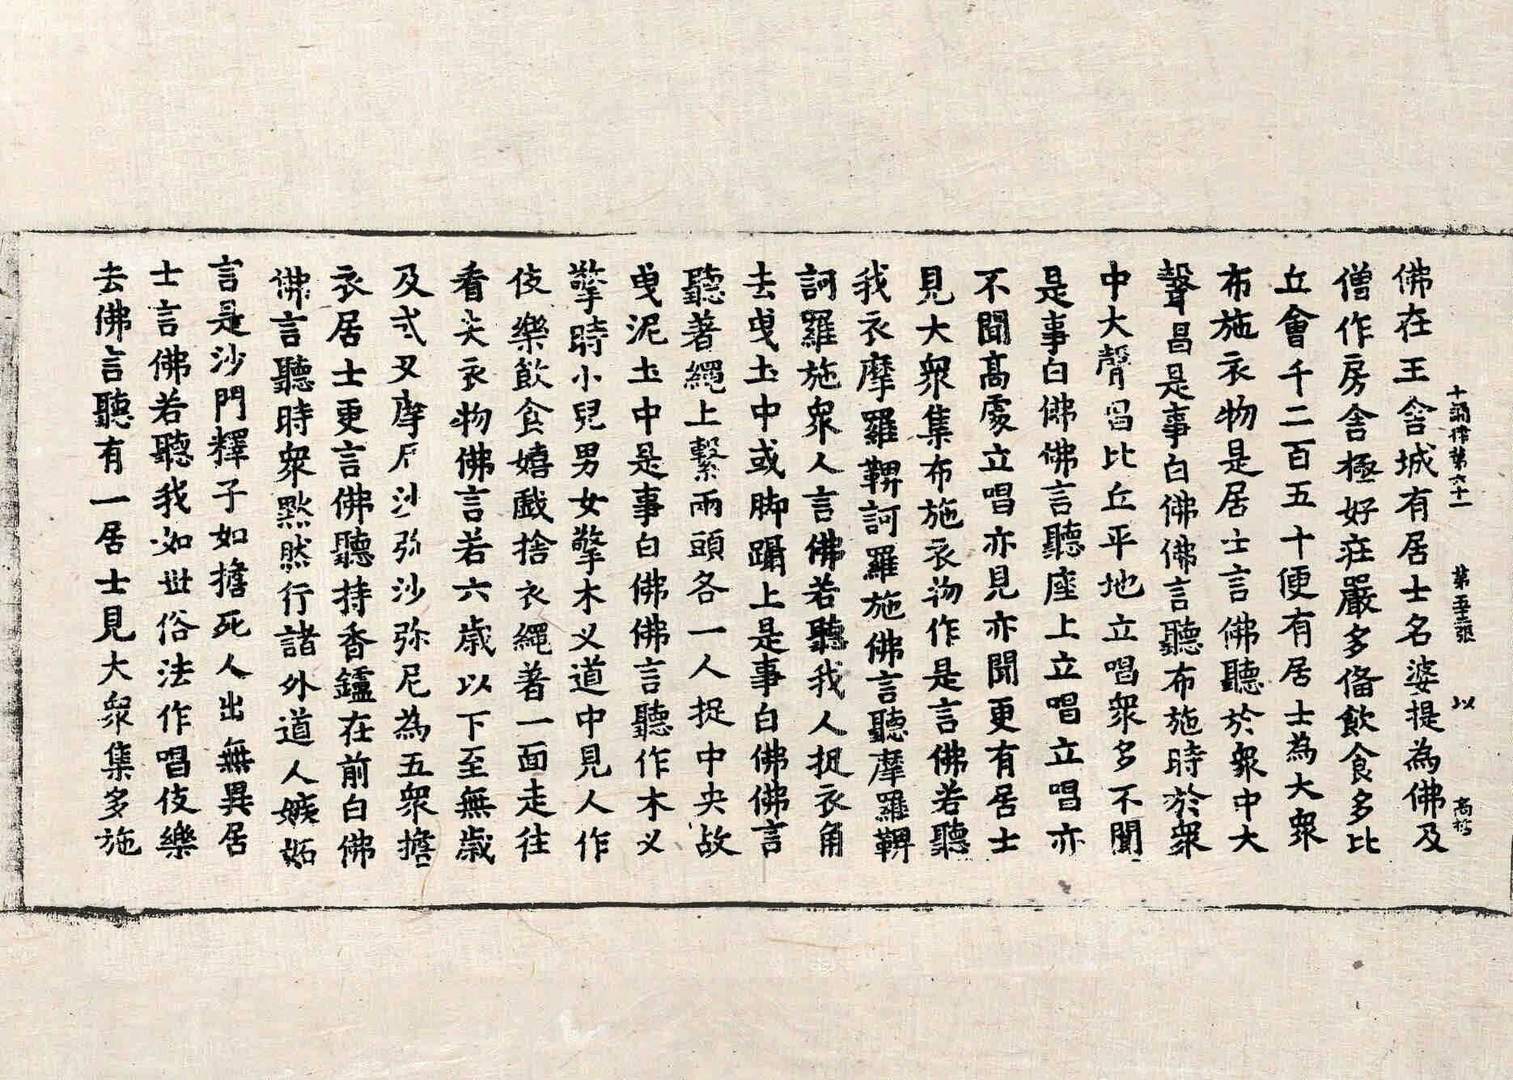 十誦律第六十一 第五張 以
佛在王舍城有居士名婆提為佛及
僧作房舍極好莊嚴多俻飲食多比
丘會千二百五十便有居士為大衆
布施衣物是居士言佛聽於衆中大
聲昌是事白佛佛言聽布施時於衆
中大聲唱比丘平地立唱衆多不聞
是事白佛佛言聽座上立唱立唱亦
不聞高處立唱亦見亦聞更有居士
見大衆集布施衣物作是言佛若聽
我衣摩羅鞞訶羅施佛言聽摩羅鞞
訶羅施衆人言佛若聽我人捉衣角
去曳土中或脚躡上是事白佛佛言
聽著繩上繫兩頭各一人捉中央故
曳泥土中是事白佛佛言聽作木义
擎時小兒男女擎木义道中見人作
伎樂飲食嬉戲捨衣繩著一面走往
看失衣物佛言若六歲以下至無歲
及式叉摩尼沙弥沙弥尼為五衆擔
衣居士更言佛聽持香鑪在前白佛
佛言聽時衆黙然行諸外道人嫉妬
言是沙門釋子如擔死人出無異居
士言佛若聽我如世俗法作唱伎樂
去佛言聽有一居士見大衆集多施